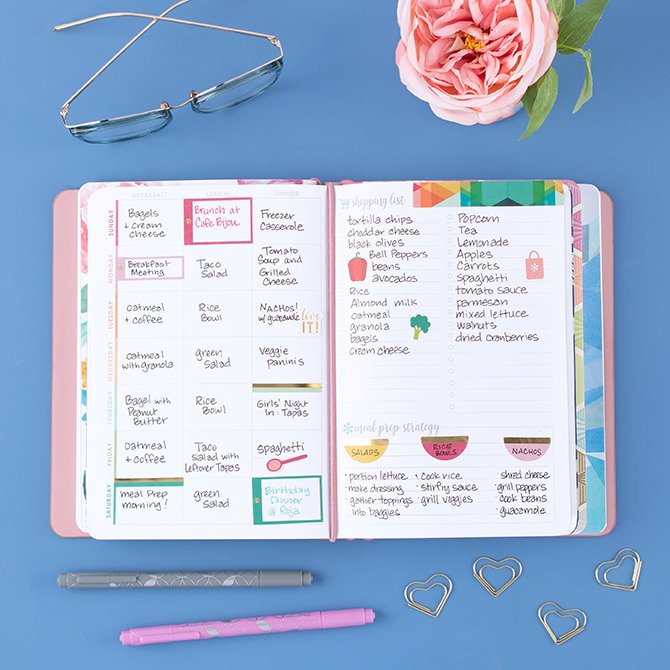 BREAKFAST LUNCH DINNER
SUNDAY
Bagels
+ cream
cheese
Brunch at
Cafe Bijou
Freezer
Casserole
MONDAY
Breakfast
Meeting
Taco
Salad
Tomato
Soup and
Grilled
Cheese
TUESDAY
oatmeal
+ coffee
Rice
Bowl
NACHOS!
w/ guacamole
love
IT!
WEDNESDAY
oatmeal
with granola
green
Salad
Veggie
paninis
THURSDAY
Bagel with
Peanut
Butter
Rice
Bowl
Girls' Night
In: Tapas
FRIDAY
Oatmeal
+ coffee
Taco
Salad with
leftover Tapas
spaghetti
SATURDAY
meal Prep
morning!
green
Salad
Birthday
Dinner
@ Roja
shopping list
tortilla chips
cheddar cheese
black olives
Bell Peppers
beans
avocados
Rice
Almond milk
oatmeal
granola
bagels
cream cheese
Popcorn
Tea
Lemonade
Apples
Carrots
Spaghetti
tomato sauce
parmesan
mixed lettuce
walnuts
dried cranberries
meal prep strategy
SALADS
• portion lettuce
make dressing
gather toppings
into baggies
RICE
BOWLS
• cook rice
• stirfry sauce
• grill veggies
NACHOS
• shred cheese
• grill peppers
• cook beans
• guacamole